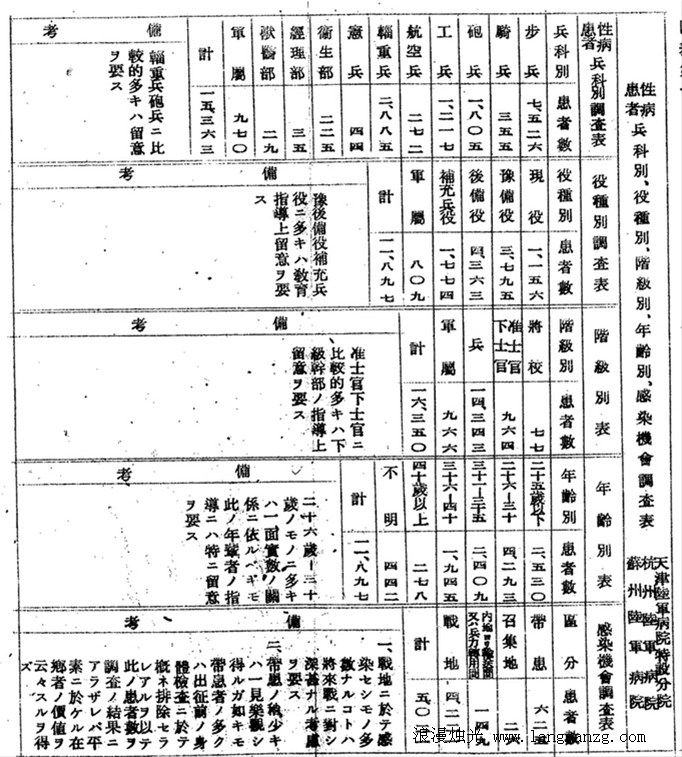 性病患者兵科別、役種別、階級別、年齡別、感染機會調查表
天津陸軍病院特設分院
杭州陸軍病院
蘇州陸軍病院
性病患者兵科別調查表
兵科別 患者數
步兵 七、五二六
騎兵 三五五
砲兵 一、八〇五
工兵 一、二一七
航空兵 二七二
輜重兵 二、八八五
憲兵 四四
衛生部 二二五
經理部 三五
獸醫部 二九
軍屬 九七〇
計 一五、三六三
備考
輜重兵砲兵ニ比
較的多キハ留意
ヲ要ス
役種別調查表
役種別 患者數
現役 一、一五六
豫備役 三、七九五
後備役 四、三六三
補充兵役 一、七七四
軍屬 八〇九
計 一一、八九七
備考
豫後備役補充兵
役ニ多キハ敎育
指導上留意ヲ要
ス
階級別表
階級別 患者數
將校 七七
准士官下士官 九六四
兵 一四、三四三
軍屬 九六六
計 一六、三五〇
備考
准士官下士官ニ
比較的多キハ下
級幹部ノ指導上
留意ヲ要ス
年齡別表
年齡別 患者數
二十五歲以下 二、五三〇
二十六—三十 四、二九三
三十一—三十五 二、四〇九
三十六—四十 一、九四五
四十歲以上 二七八
不明 四四二
計 一一、八九七
備考
二十六歲—三十
歲ノモノニ多キ
ハ一面實數ノ關
係ニ依ルベキモ
此ノ年輩者ノ指
導ニハ特ニ留意
ヲ要ス
感染機會調查表
區分 患者數
帶患 六二五
召集地
內地
戰地
計
備考
一、戰地ニ於テ感
染セシモノ多
數ナルコトハ
將來戰ニ對シ
深甚ナル考慮
ヲ要ス
二、帶患ノ稍少キ
ハ一見樂觀シ
得ルガ如キモ
帶患者ノ多ク
ハ出征前ノ身
體檢查ニ於テ
概ネ排除セラ
レアルヲ以テ
此ノ患者數ヲ
調查ノ結果ニ
アラザレバ平
素ニ於ケル在
鄉者ノ價値ヲ
云々スルヲ得
ズ
浪漫烛光 www.langmanzg.com